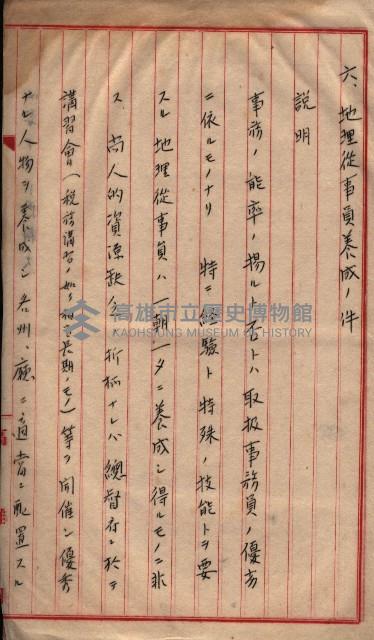 六、地理從事員養成ノ件
説明
事務ノ能率ノ揚ルト否トハ取扱事務員ノ優劣
ニ依ルモノナリ 特ニ經驗ト特殊ノ技能トヲ要
スル地理從事員ハ一朝一夕ニ養成シ得ルモノニ非
ス 尚人的資源缺乏ノ折柄ナレハ總督府ニ於テ
講習會(税務講習ノ如キ相當長期ノモノ)等ヲ開催シ優秀
ナル人物ヲ養成シ各州、廳ニ適當ニ配置スル
高雄市立歷史博物館
KAOHSIUNG MUSEUM OF HISTORY
高雄